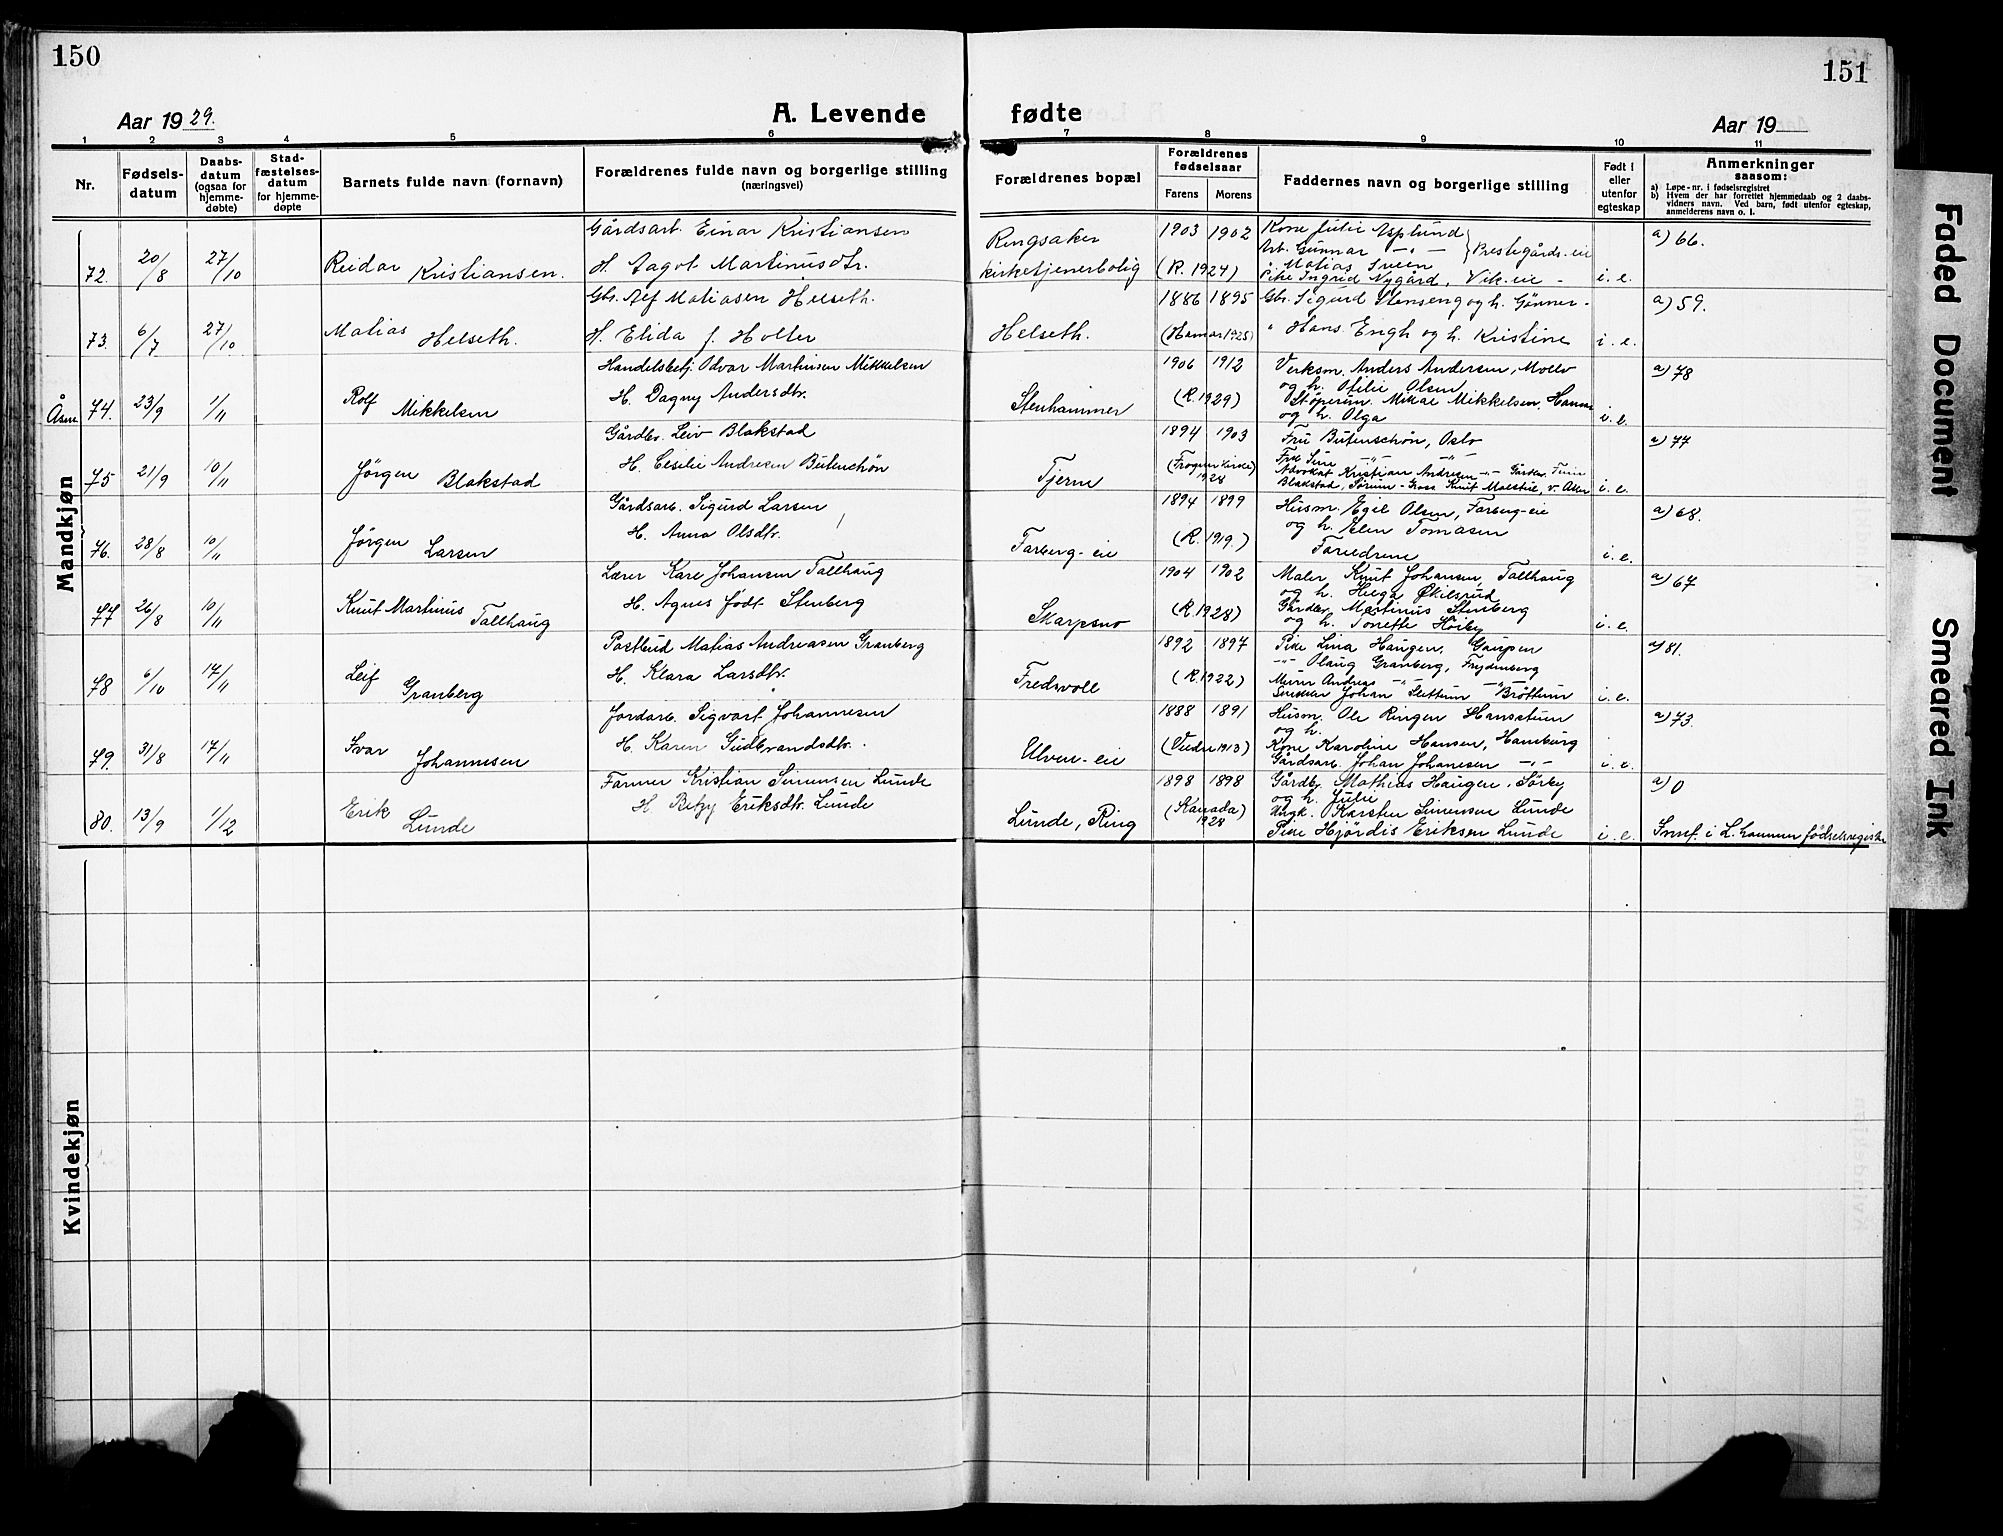 150
151
Aar 1929.
A. Levende fødte
Aar 19
1 2 3 4 5 6 7 8 9 10 11
Nr.
Fødsels-
datum
Daabs-
datum
(ogsaa for
hjemme-
døbte)
Stad-
fæstelses-
datum
for hjemme-
døpte
Barnets fulde navn (fornavn)
Forældrenes fulde navn og borgerlige stilling
(næringsvei)
Forældrenes bopæl
Forældrenes
fødselsaar
Farens Morens
Faddernes navn og borgerlige stilling
Født i
eller
utenfor
egteskap
Anmerkninger
saasom:
a) Løpe-nr. i fødselsregistret
b) Hvem der har forrettet hjemmedaab og 2 daabs-
vidners navn. Ved barn, født utenfor egteskap,
anmelderens navn o. l.
Mandkjøn
72. 20/8 27/10 Reidar Kristiansen.
Gårdsarb. Einar Kristiansen
H. Aagot Martinusdtr.
Ringsaker
kirketjenerbolig
1903 1902
(R. 1924)
Kone Julie Asplund
Arb. Gunnar -"- Prestegårds-eie
" Matias Sveen
Pike Ingrid Nygård, Vik-eie -
i. e.
a) 66.
73. 6/7 27/10 Matias Helseth.
Gbr. Alf Matiasen Helseth.
H. Elida f. Holter
Helseth.
1886 1895
(Hamar 1925)
Gbr. Sigurd Stenseng og h. Gunner -
" Hans Engh og h. Kristine
i. e.
a) 59.
Åsm. 74. 23/9 1/11 Rolf Mikkelsen
Handelsbetj. Odvar Martinsen Mikkelsen
H. Dagny Andersdtr.
Stenhammer
1906 1912
(R. 1929)
Verksm. Anders Andersen, Moelv
og h. Otilie Olsen
Mikkelsen, Hamar
og h. Olga
i. e.
a) 78
75 21/9 10/11 Jørgen Blakstad
Gårdbr. Leiv Blakstad
H. Cecilie Andresen Butenschøn
Tjerne
1894 1903
(Frogner kirke)
1928
Fru Butenschøn, Oslo
Advokat Kristian Andresen -"-
Blakstad, Sørum
i. e.
a) 77
76. 28/8 10/11 Jørgen Larsen
Gårdsarb. Sigurd Larsen
H. Anna Olsdtr.
Farberg-eie
1894 1899
(R. 1919.)
Husm. Egil Olsen, Farberg-eie
og h. Elen Tomasen
Foreldrene
i. e.
a) 68.
77 26/8 10/11 Knut Martinus Tallhaug
Lærer Kare Johansen Tallhaug
H. Agnes født Stenberg
Skarpsno
1904 1902
(R. 1928)
Maler Knut Johansen, Tallhaug
og h. Helga Økilsrud
Gårdbr. Martinus Stenberg
og h. Tonette Høiby
i. e.
a) 67
78 6/10 17/11 Leif Granberg
Postbud Matias Andreasen Granberg
H. Klara Larsdtr.
Fredsvoll
1892 1897
(R. 1922)
Pike Lina Haugen, Gaupen
-"- Olaug Granberg, Frydenberg
Murer Andreas -"- -"-
Snekker Johan Slettum - Brøttum
i. e.
a) 81.
79. 31/8 17/11 Ivar Johannesen
Jordarb. Sigvart Johannesen
H. Karen Gudbrandsdtr.
Ulven-eie
1888 1891
(Veldre 1913)
Husm. Ole Ringen Hansstuen
og h.
Kone Karoline Hansen, Hamburg
Gårdsarb. Johan Johansen -"-
i. e.
a) 73.
80. 13/9 1/12 Erik Lunde
Farmer Kristian Simensen Lunde
H. Betzy Eriksdtr. Lunde
Lunde, Ring
1898 1898
(Kanada)
1928
Gårdbr. Mathias Haugen, Sørby
og h. Julie
Ungk. Karsten Simensen Lunde
Pike Hjørdis Eriksen Lunde
i. e.
a) 0
Innf. i L.hammer fødselsregister
Kvindekjøn
Faded Document
Smeared Ink